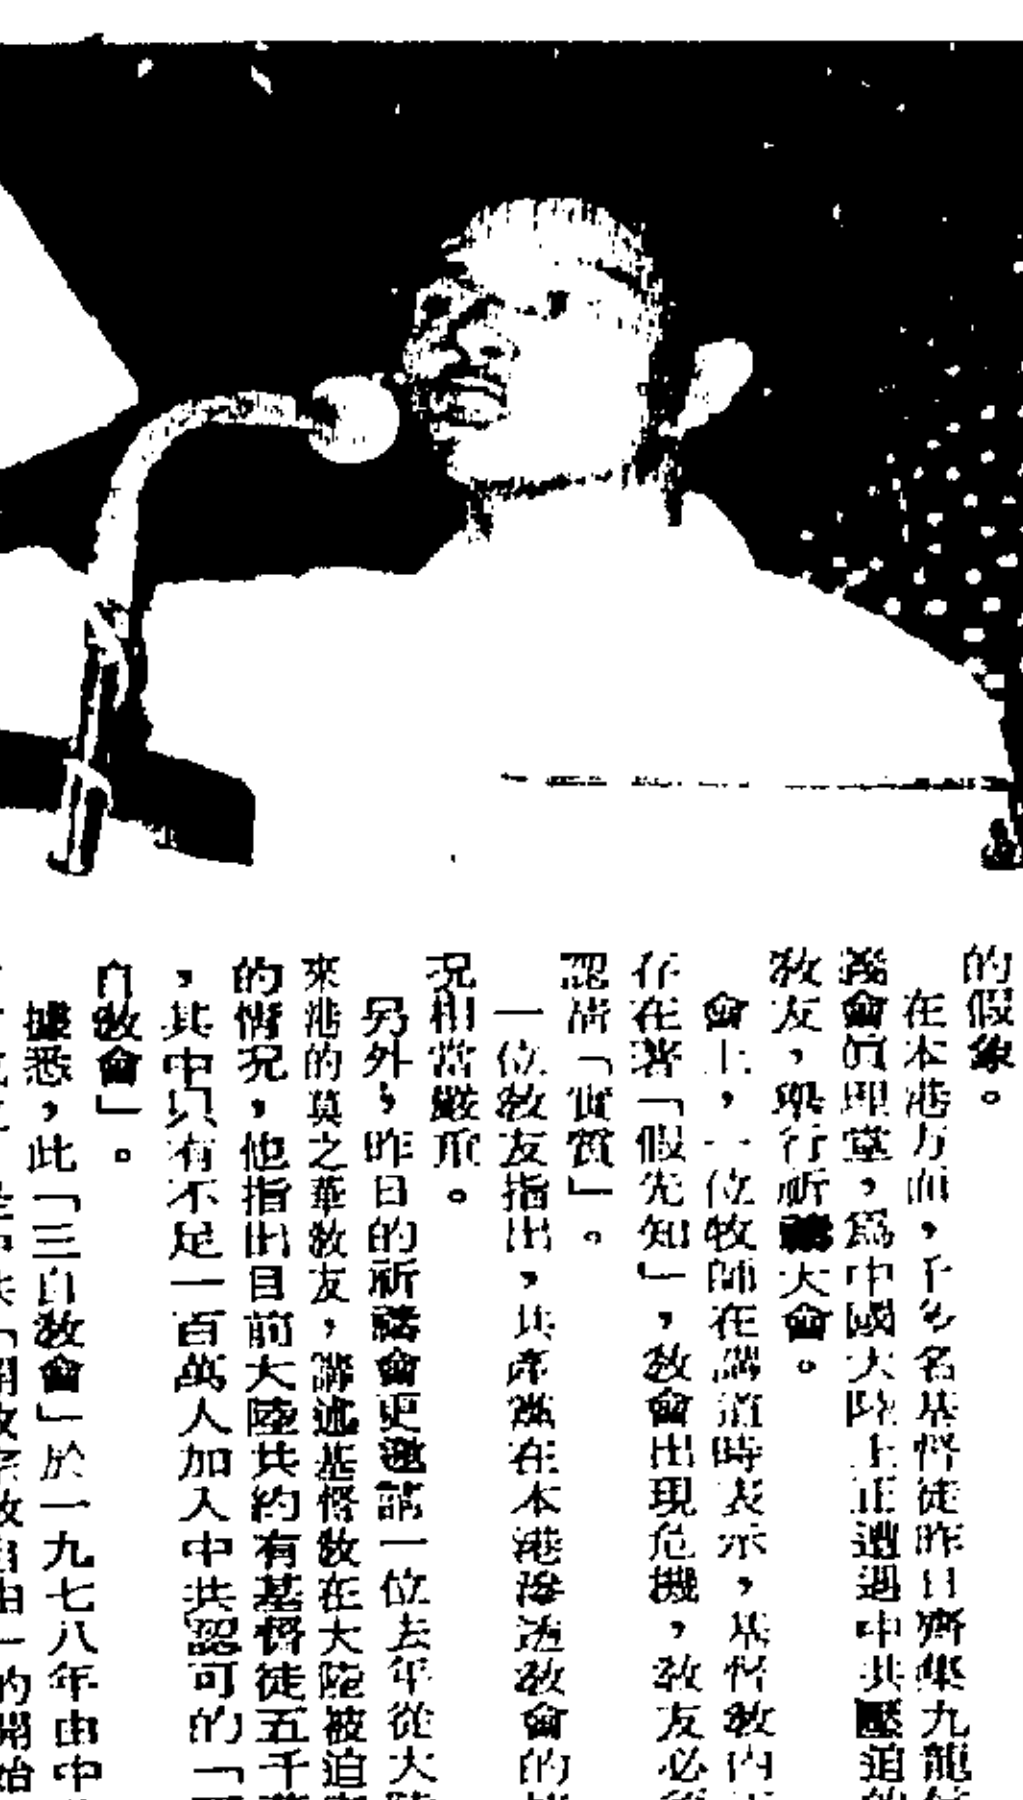 的假象。
在本港方面,千多名基督徒昨日齊集九龍
義會真理堂,為中國大陸上正遭遇中共壓迫的
教友,舉行祈禱大會。
會上,一位牧師在講道時表示,基督教內
存在著「假先知」,教會出現危機,教友必
認清「實質」。
一位教友指出,共產黨在本港滲透教會的
況相當嚴重。
另外,昨日的祈禱會更邀請一位去年從大陸
來港的莫之華教友,講述基督教在大陸被迫
的情況,他指出目前大陸共約有基督徒五千
,其中只有不足一百萬人加入中共認可的「
自教會」。
據悉,此「三自教會」於一九七八年由中